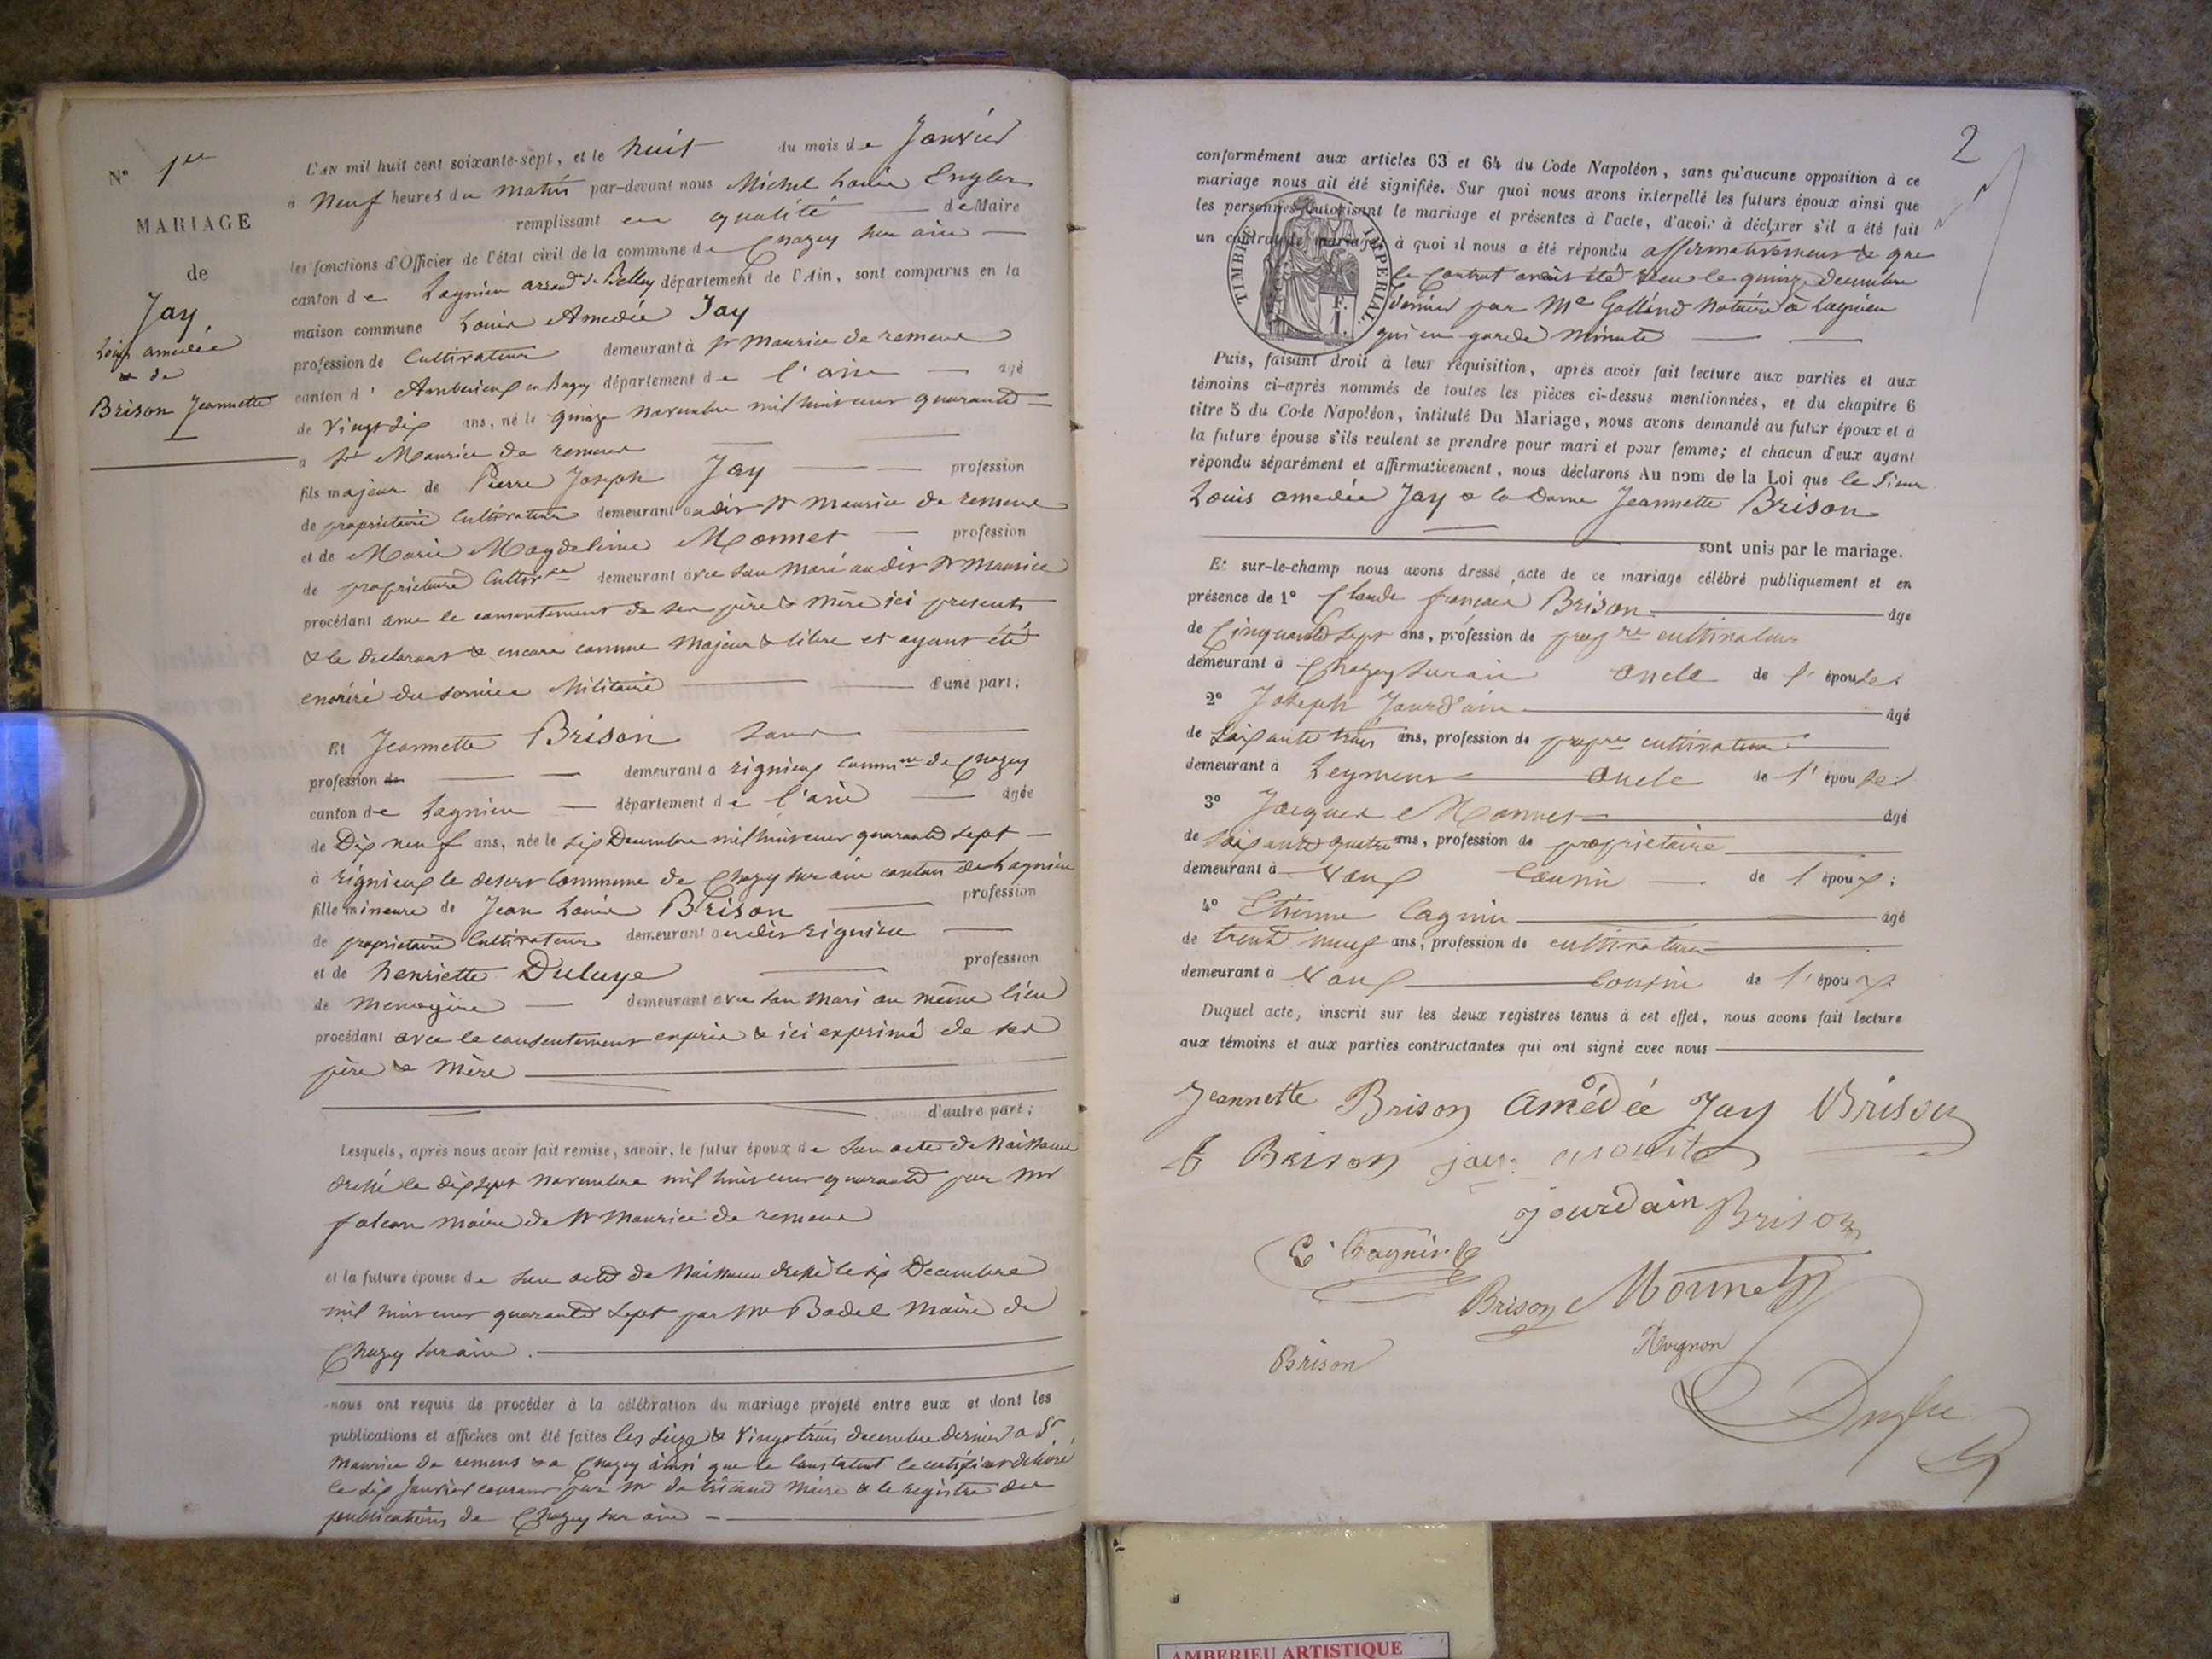 N° 1er
MARIAGE
de
Jay
Louis amédée
& de
Brison Jeannette
L'AN mil huit cent soixante-sept, et le huit du mois de Janvier
à Neuf heures du matin par-devant nous Michel Louis
remplissant en qualité de Maire
les fonctions d'Officier de l'état civil de la commune de Chazey sur ain
canton de Lagnieu arrond. de Belley département de l'Ain, sont comparus en la
maison commune Louis Amédée Jay
profession de Cultivateur demeurant à St Maurice de remens
canton d'Amberieux en Bugey département de l'ain âgé
de Vingt six ans, né le quinze novembre mil huit cent quarante
à St Maurice de remens
fils majeur de Pierre Joseph Jay profession
de propriétaire Cultivateur demeurant audit St Maurice de remens
et de Marie Magdeleine Monnet profession
de propriétaire Cultivrce demeurant avec son mari audit St Maurice
procédant avec le consentement de ses père & mère ici présents
& le déclarant & encore comme majeur & libre et ayant été
exonéré du service Militaire d'une part.
Et Jeannette Brison sans
profession de demeurant à rignieux commune de Chazey
canton de Lagnieu département de l'ain âgée
de Dix neuf ans, née le six Decembre mil huit cent quarante sept
à rignieux le desert Commune de Chazey sur ain canton de Lagnieu
fille mineure de Jean Louis Brison profession
de propriétaire Cultivateur demeurant audit rignieu
et de henriette Duluye profession
de menagère demeurant avec son mari au même lieu
procédant avec le consentement exprès & ici exprimé de ses
père & mère
d'autre part;
Lesquels, après nous avoir fait remise, savoir, le futur époux de son acte de Naissance
dressé le dix sept novembre mil huit cent quarante par Mr
falcon maire de St Maurice de remens
et la future épouse de son acte de Naissance dressé le six Decembre
mil huit cent quarante sept par Mr Badel Maire de
Chazey sur ain.
nous ont requis de procéder à la célébration du mariage projeté entre eux et dont les
publications et affiches ont été faites les seize & vingt trois decembre dernier à St
Maurice de remens & a Chazey ainsi que le constatent le certificat délivré
le six Janvier courant par Mr de tricaud Maire & le registre des
publications de Chazey sur ain
2
conformément aux articles 63 et 64 du Code Napoléon, sans qu'aucune opposition à ce
mariage nous ait été signifiée. Sur quoi nous avons interpellé les futurs époux ainsi que
les personnes autorisant le mariage et présentes à l'acte, d'avoir à déclarer s'il a été fait
un contrat de mariage, à quoi il nous a été répondu affirmativement & que
le Contrat avait été reçu le quinze decembre
dernier par Me Golland Notaire à Lagnieu
qui en garde Minute
TIMBRE IMPERIAL
Puis, faisant droit à leur réquisition, après avoir fait lecture aux parties et aux
témoins ci-après nommés de toutes les pièces ci-dessus mentionnées, et du chapitre 6
titre 5 du Code Napoléon, intitulé Du Mariage, nous avons demandé au futur époux et à
la future épouse s'ils veulent se prendre pour mari et pour femme; et chacun d'eux ayant
répondu séparément et affirmativement, nous déclarons Au nom de la Loi que le Sieur
Louis amédée Jay & la Dame Jeannette Brison
sont unis par le mariage.
Et sur-le-champ nous avons dressé acte de ce mariage célébré publiquement et en
présence de 1° Claude françois Brison âgé
de Cinquante sept ans, profession de propre cultivateur
demeurant à Chazey sur ain oncle de l'épouse
2° Joseph Jourdain âgé
de soixante trois ans, profession de propre cultivateur
demeurant à Leyment oncle de l'épouse
3° Jacques Monnet âgé
de soixante quatre ans, profession de propriétaire
demeurant à Vaux Cousin de l'époux;
4° Etienne Cagnin âgé
de trente neuf ans, profession de cultivateur
demeurant à Vaux Cousin de l'époux
Duquel acte, inscrit sur les deux registres tenus à cet effet, nous avons fait lecture
aux témoins et aux parties contractantes qui ont signé avec nous
Jeannette Brison amédée Jay Brison
Brison jay
jourdain Brison
Brison Monnet
Brison
AMBERIEU ARTISTIQUE